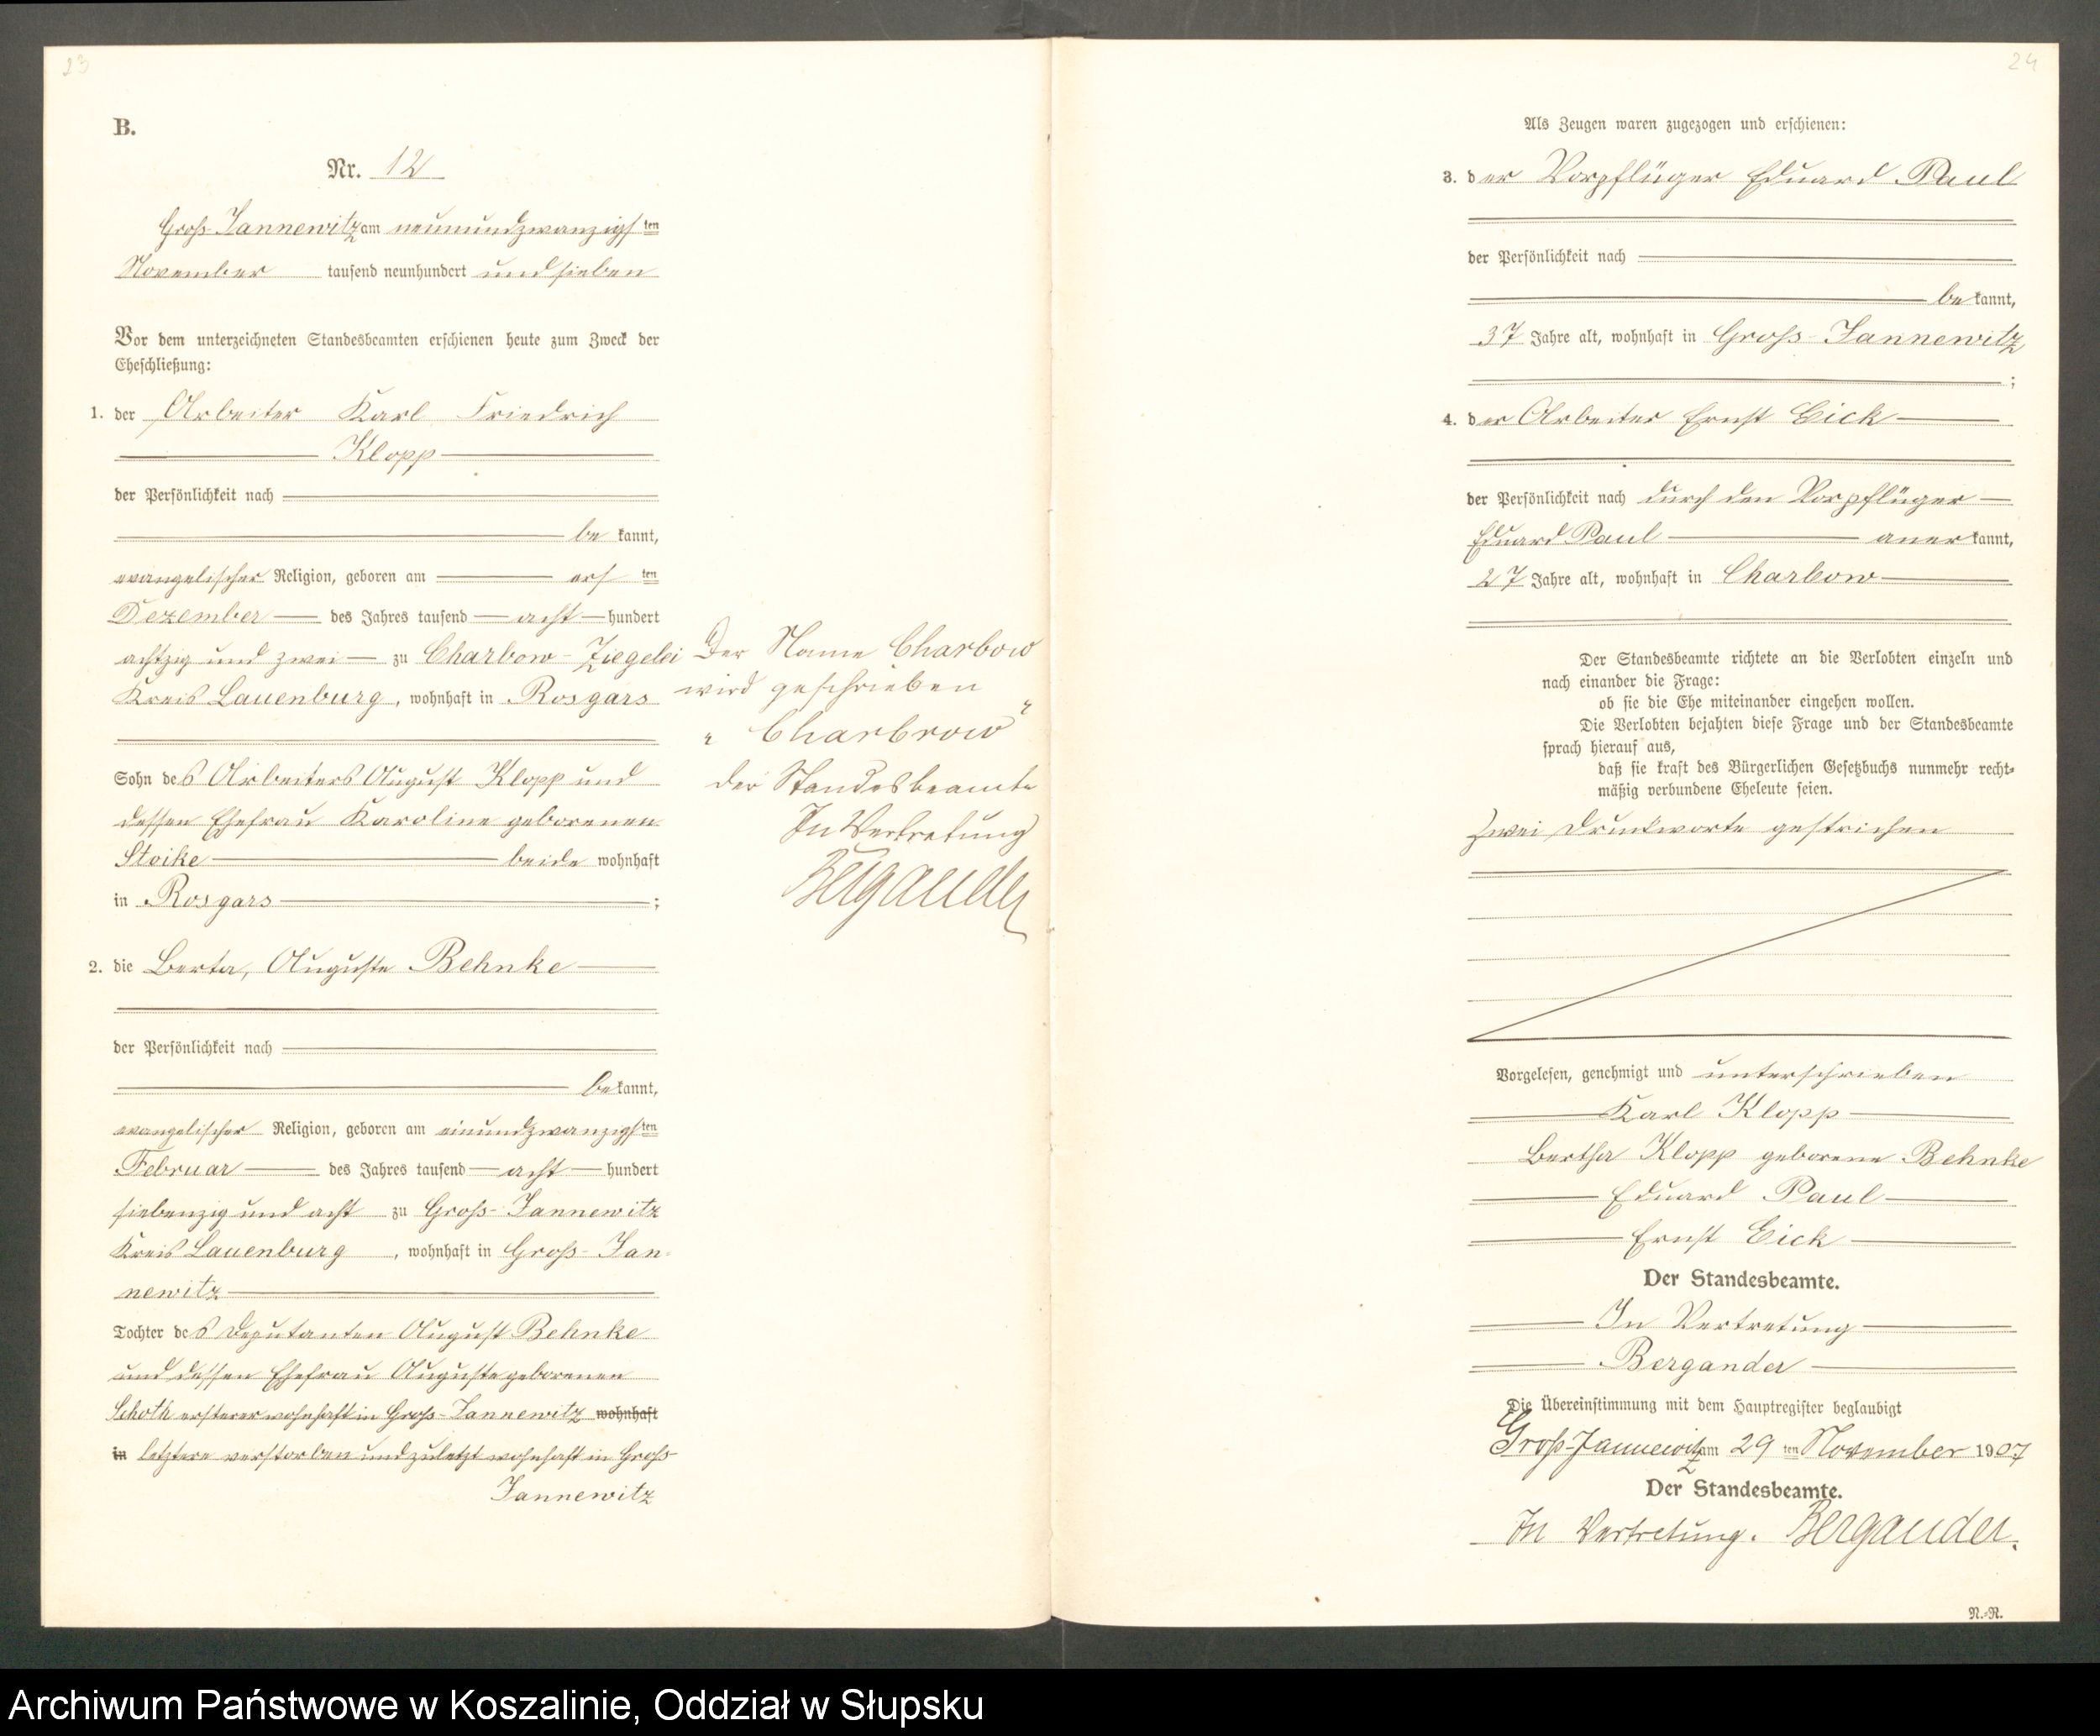 23
B.
Nr. 12
Groß-Jannewitz am neunundzwanzigsten
November tausend neunhundert und sieben
Vor dem unterzeichneten Standesbeamten erschienen heute zum Zweck der
Eheschließung:
1. der Arbeiter Karl Friedrich
Klopp
der Persönlichkeit nach
bekannt,
evangelischer Religion, geboren am ersten
Dezember des Jahres tausend acht hundert
achtzig und zwei zu Charbow-Ziegelei
Kreis Lauenburg, wohnhaft in Rosgars
Sohn des Arbeiters August Klopp und
dessen Ehefrau Karoline geborenen
Stoike beide wohnhaft
in Rosgars ;
2. die Berta, Auguste Behnke
der Persönlichkeit nach
bekannt,
evangelischer Religion, geboren am einundzwanzigsten
Februar des Jahres tausend acht hundert
siebenzig und acht zu Groß-Jannewitz
Kreis Lauenburg, wohnhaft in Groß-Jan-
newitz
Tochter des Deputanten August Behnke
und dessen Ehefrau Auguste geborenen
Schoth ersterer wohnhaft in Groß-Jannewitz wohnhaft
in letztere verstorben und zuletzt wohnhaft in Groß-
Jannewitz
Der Name Charbow
wird geschrieben
„Charbrow"
Der Standesbeamte
In Vertretung
Bergander
24
Als Zeugen waren zugezogen und erschienen:
3. der Vorpflüger Eduard Paul
der Persönlichkeit nach
bekannt,
37 Jahre alt, wohnhaft in Groß-Jannewitz
;
4. der Arbeiter Ernst Eick
der Persönlichkeit nach durch den Vorpflüger
Eduard Paul anerkannt,
27 Jahre alt, wohnhaft in Charbow
Der Standesbeamte richtete an die Verlobten einzeln und
nach einander die Frage:
ob sie die Ehe miteinander eingehen wollen.
Die Verlobten bejahten diese Frage und der Standesbeamte
sprach hierauf aus,
daß sie kraft des Bürgerlichen Gesetzbuchs nunmehr recht-
mäßig verbundene Eheleute seien.
Zwei Druckworte gestrichen
Vorgelesen, genehmigt und unterschrieben
Karl Klopp
Bertha Klopp geborene Behnke
Eduard Paul
Ernst Eick
Der Standesbeamte.
In Vertretung
Bergander
Die Übereinstimmung mit dem Hauptregister beglaubigt
Groß-Jannewitz am 29ten November 1907
Der Standesbeamte.
In Vertretung. Bergander.
N.-R.
Archiwum Państwowe w Koszalinie, Oddział w Słupsku